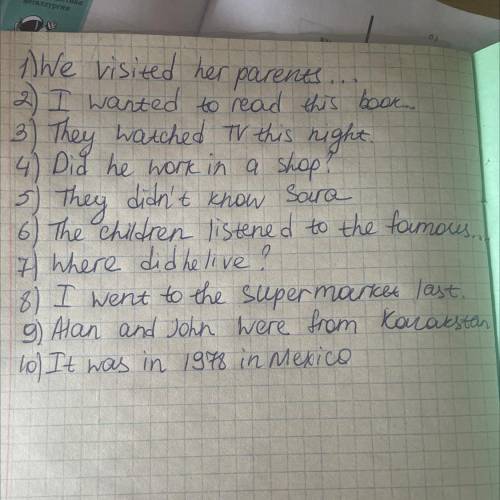 металлургии
1) We visited her parents...
2) I wanted to read this book...
3) They watched TV this night.
4) Did he work in a shop?
5) They didn't know Sara
6) The children listened to the famous...
7) Where did he live?
8) I went to the supermarket last.
9) Alan and John were from Kazakstan
10) It was in 1978 in Mexico